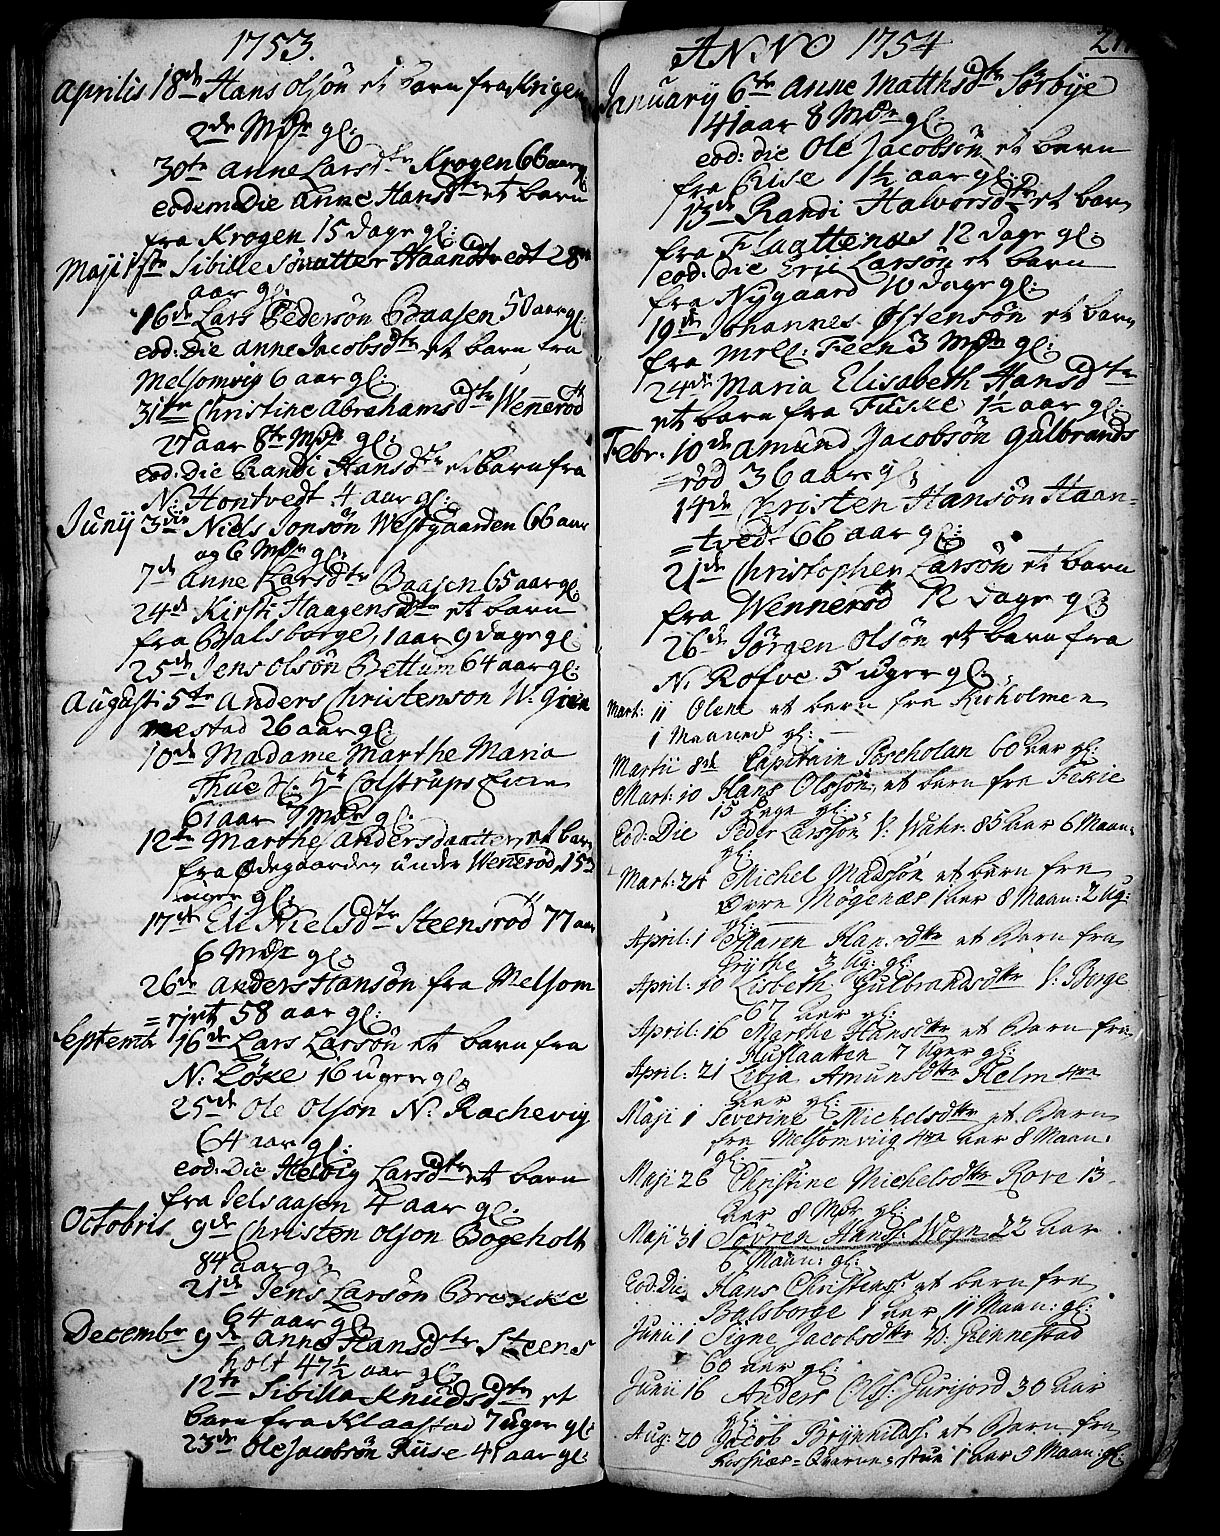 1753.
Aprilis 18de Hans Olsøn et barn fra Krigen
2de Mdr gl:
30te Anne Larsdtr Krogen 66 aar gl
eodem Die Anne Hansdtr et barn
fra Krogen 15 dage gl:
Maji 1ste Sibille Haandtvedt 28
aar gl:
16de Lars Pedersøn Baasen 50 aar gl:
eod: Die Anne Jacobsdtr et barn fra
Melsomvig 6 aar gl:
31te Christine Abrahamsdtr Wennerød
27 aar 8te Mdr gl:
eod: Die Randi Hansdtr et barn fra
N: Hontvedt 4 aar gl:
Junij 3die Niels Jonsøn Westgaarden 66 aar
og 6 Mdr gl:
7de Anne Larsdtr Baasen 65 aar gl
24de Kirsti Haagensdtr et barn
fra Balsborge, 1 aar 9 dage gl
25de Jens Olsøn Bettum 64 aar gl:
Augusti 5te Anders Christenson W: Gien
mestad 26 aar gl:
10de Madame Marthe Maria
Thue Sl: Hr Colstrups Enke
61 aar 7 Mdr gl:
12te Marthe Andersdaatter et barn
fra Ødegaarden under Wennerød, 15
uger gl:
17de Eli Nielsdtr Steensrød 77 aar
6 Mdr gl:
26de Anders Hansøn fra Melsom
= 58 aar gl:
Septemb 16de Lars Larsøn et barn fra
N: Løke 16 uger gl
25de Ole Olsøn N: Rachevig
64 aar gl:
eod: Die Helvig Larsdtr et barn
fra Jelsaasen 4 aar gl:
Octobris 9de Christen Olson Bøgeholt
84 aar gl
21de Jens Larsøn Brekke
64 aar gl
Decembr 9de Anne Hansdtr Steens
holt 47½ aar gl:
12te Sibilla Knudsdtr et
barn fra Klaastad 7 uger gl:
23de Ole Jacobsøn Riise 41 aar gl:
ANNO 1754
Januarij 6te Anne Matthsdtr Sørbye
41 aar 8 Mdr gl:
eod: die Ole Jacobsøn et barn
fra Riise 1½ aar gl:
13de Randi Halvorsdtr et barn
fra Flaattenes 12 dage gl:
eod: Die Eric Larsøn et barn
fra Nygaard 10 dage gl:
19de Johannes Østensøn et barn
fra Mell: Feen 3 Mdr gl:
24de Maria Elisabeth Hansdtr
et barn fra Fuske 1½ aar gl:
Febr: 10de Amund Jacobsøn Gulbrands
=rød 36 aar gl:
14de Christen Hansøn Haan=
=tvedt 66 aar gl:
21de Christopher Larsøn et barn
fra Wennerød 12 dage gl
26de Jørgen Olsøn et barn fra
N: Rofve 5 uger gl:
Mart: 11 Olene et barn fra Kirholmen
1 Maaned gl:
Martii 8de Capitain Poscholan 60 aar gl:
Mart: 10 Hans Olssøn, et barn fra Fekie
15 Dage gl:
Eod: Die Peder Larssøn V: 85 aar 6 Maan:
gl:
Mart: 24 Michel Madsøn et barn fra
Øvre Møgenæs 1 aar 8 Maan: 2 ug:
gl:
April: 1 Maren Hansdtr et Barn fra
Grythe 3 ug: gl:
April: 10 Lisbeth Gulbrandsdtr V: Berge
67 aar gl:
April: 16 Marthe Hansdtr et Barn fra
7 Uger gl:
April: 21 Livia Amunsdtr Helm
aar gl:
Maji 1 Severine Michelsdtr et Barn
fra Melsomviig aar 8 Maan:
gl:
Maji 26 Christine Michelsdtr Rove 13
aar 8 Mdr gl:
Maji 31 Søvren Hans: Wogn 22 aar
6 Maan: gl:
Eod: Die Hans Christens: et barn fra
Balsborge 1 aar 11 Maan: gl:
Junii 1 Signe Jacobsdtr V: Giennestad
60 aar gl:
Junii 16 Anders Olss: Gurijord 30 aar
gl:
Aug: 20 Jacob Brynnilds: et Barn fra
1 aar 3 Maan: gl: